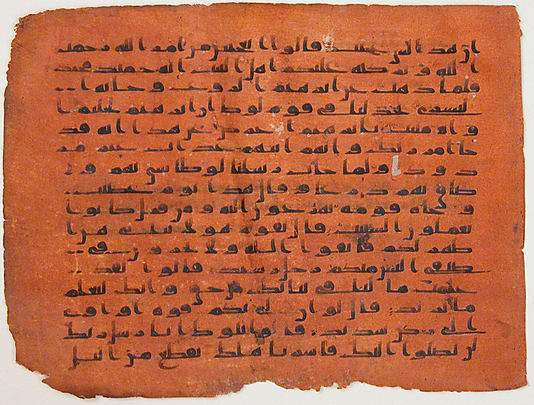 ان هذا لشى عجيب قالوا اتعجبين من امر الله رحمت
الله وبركته عليكم اهل البيت انه حميد مجيد
فلما ذهب عن ابرهيم الروع وجاته ا
لبشرى يجدلنا فى قوم لوط ان ابرهيم لحليم ا
وه منيب يابرهيم اعرض عن هذا انه قد
جا امر ربك وانهم اتيهم عذاب غير مر
دود ولما جات رسلنا لوطا سى بهم و
ضاق بهم ذرعا وقال هذا يوم عصيب
وجاه قومه يهرعون اليه ومن قبل كانوا
يعملون السيات قال يقوم هولا بناتى هن ا
طهر لكم فاتقوا الله ولا تخزون فى
ضيفى اليس منكم رجل رشيد قالوا لقد
علمت ما لنا فى بناتك من حق وانك لتعلم
ما نريد قال لو ان لى بكم قوه او اوى
الى ركن شديد قالوا يلوط انا رسل ربك
لن يصلوا اليك فاسر باهلك بقطع من اليل